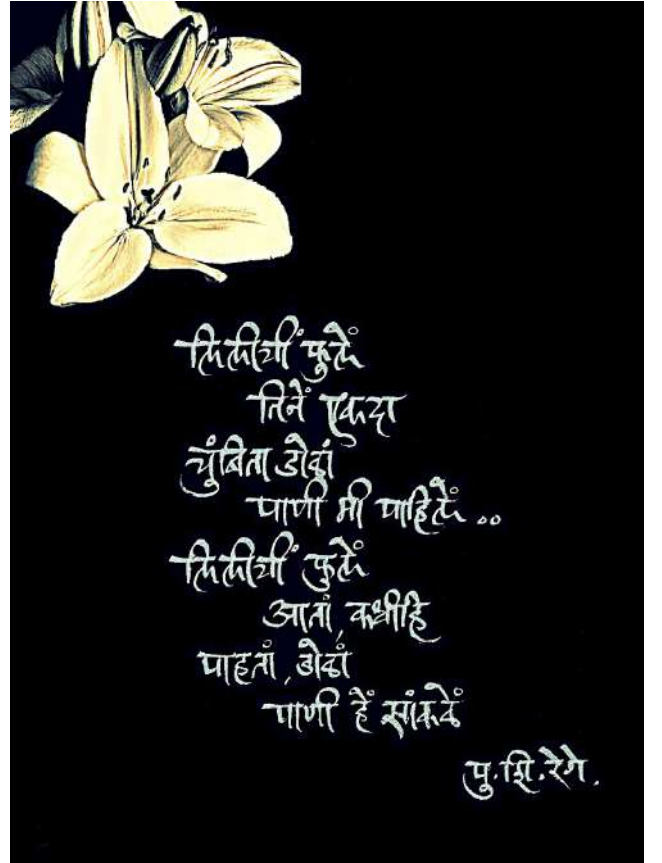 लिलीचीं फुलें
तिनें एकदा
चुंबिता डोळां
पाणी मी पाहिलें ..
लिलीचीं फुलें
आतां, कधीहि
पाहतां, डोळां
पाणी हें सांकळें
पु. शि. रेगे.